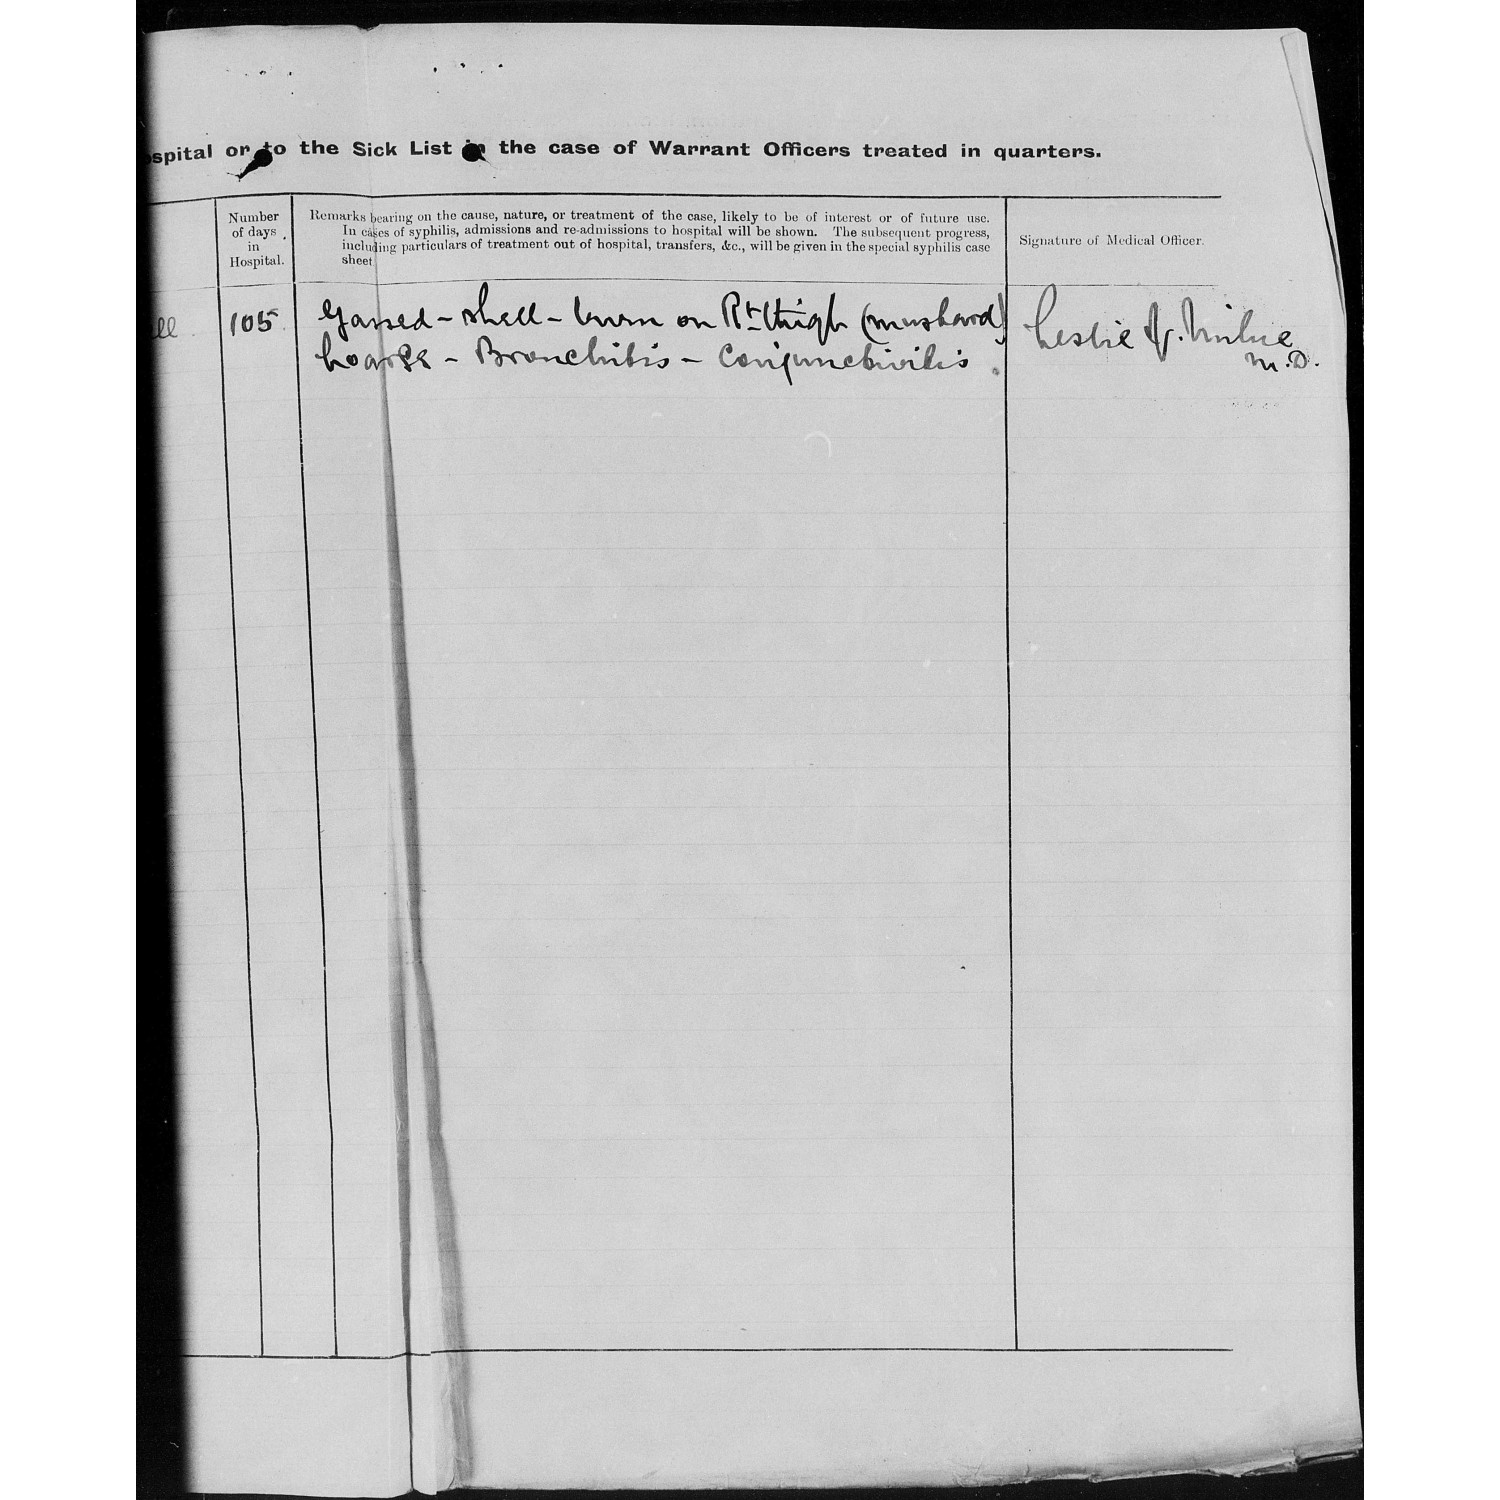 spital or to the Sick List in the case of Warrant Officers treated in quarters.
Number
of days
in
Hospital.
Remarks bearing on the cause, nature, or treatment of the case, likely to be of interest or of future use.
In cases of syphilis, admissions and re-admissions to hospital will be shown. The subsequent progress,
including particulars of treatment out of hospital, transfers, &c., will be given in the special syphilis case
sheet
Signature of Medical Officer.
105
Gassed - shell - burn on Rt thigh (mustard)
hoarse - Bronchitis - Conjunctivitis
Leslie J. Milne
M.D.